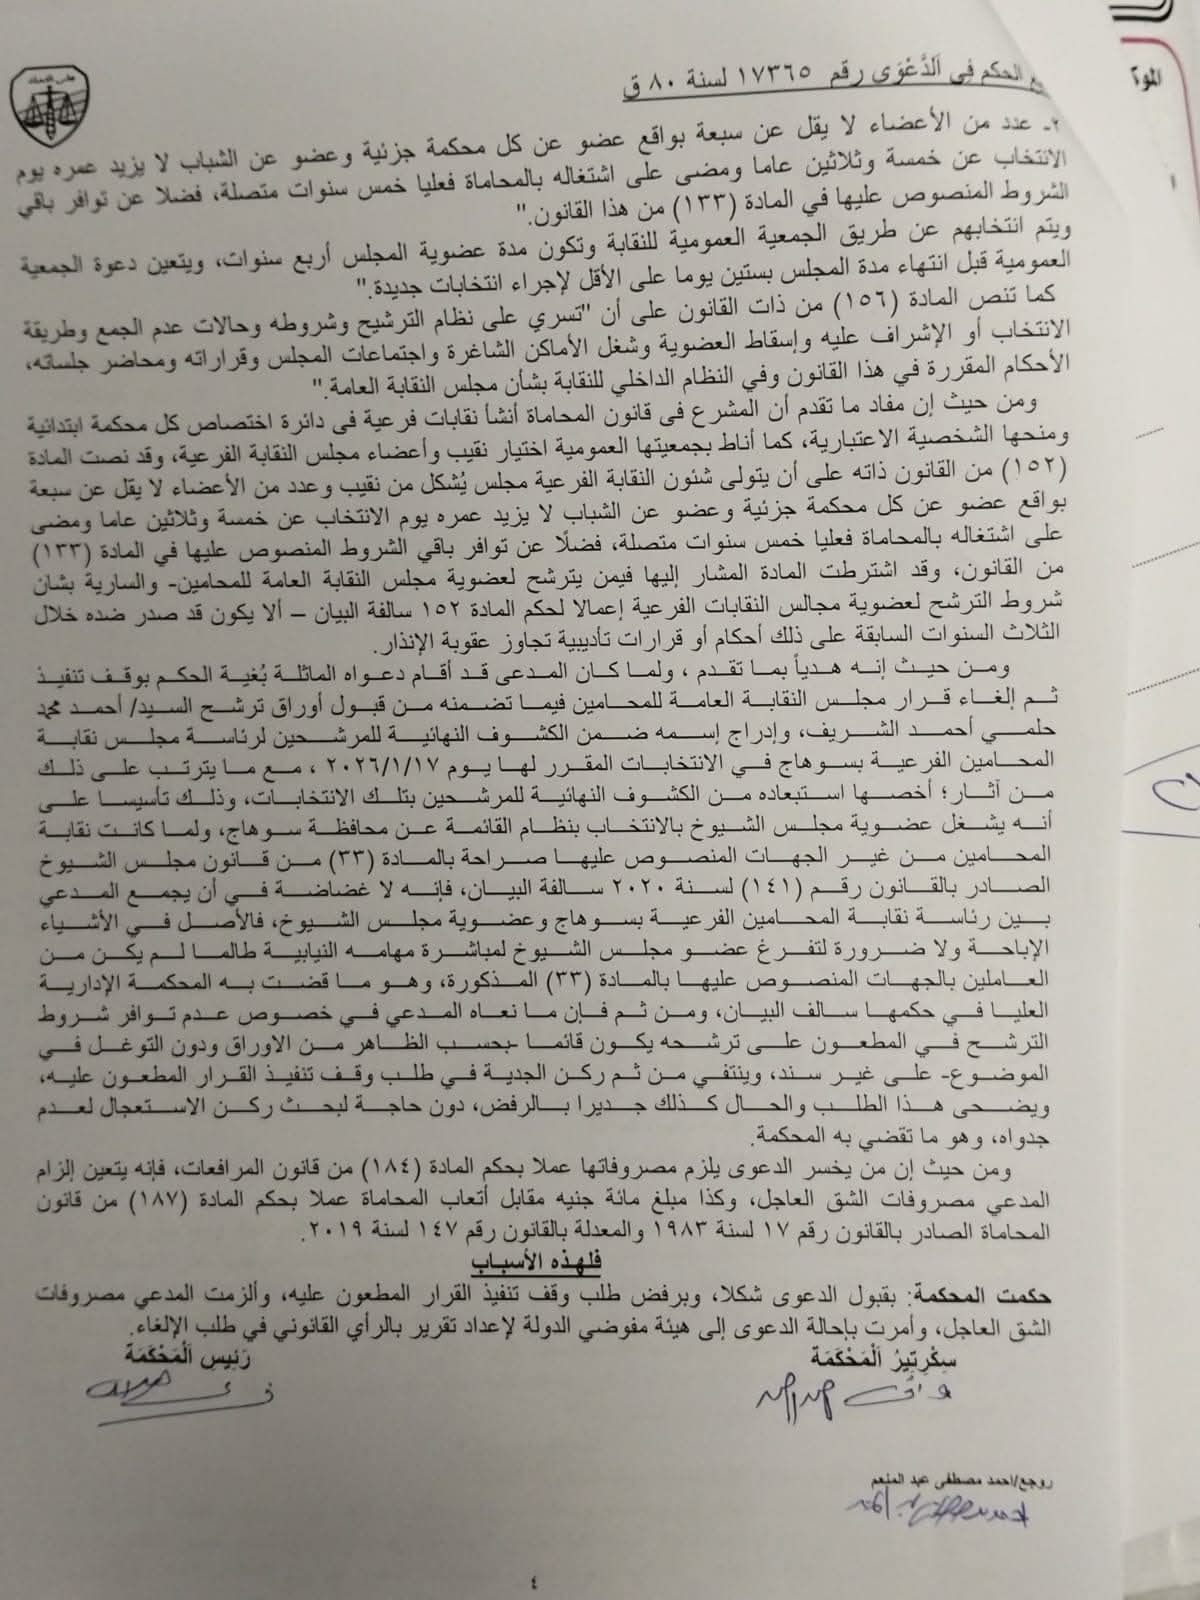 الموق
الحكم في الَدَّعْوَى رقم ١٧٣٦٥ لسنة ٨٠ ق
مجلس الدولة
٢- عدد من الأعضاء لا يقل عن سبعة بواقع عضو عن كل محكمة جزئية وعضو عن الشباب لا يزيد عمره يوم
الانتخاب عن خمسة وثلاثين عاما ومضى على اشتغاله بالمحاماة فعليا خمس سنوات متصلة، فضلا عن توافر باقي
الشروط المنصوص عليها في المادة (١٣٣) من هذا القانون."
ويتم انتخابهم عن طريق الجمعية العمومية للنقابة وتكون مدة عضوية المجلس أربع سنوات، ويتعين دعوة الجمعية
العمومية قبل انتهاء مدة المجلس بستين يوما على الأقل لإجراء انتخابات جديدة."
كما تنص المادة (١٥٦) من ذات القانون على أن "تسري على نظام الترشيح وشروطه وحالات عدم الجمع وطريقة
الانتخاب أو الإشراف عليه وإسقاط العضوية وشغل الأماكن الشاغرة واجتماعات المجلس وقراراته ومحاضر جلساته،
الأحكام المقررة في هذا القانون وفي النظام الداخلي للنقابة بشأن مجلس النقابة العامة."
ومن حيث إن مفاد ما تقدم أن المشرع فى قانون المحاماة أنشأ نقابات فرعية فى دائرة اختصاص كل محكمة ابتدائية
ومنحها الشخصية الاعتبارية، كما أناط بجمعيتها العمومية اختيار نقيب وأعضاء مجلس النقابة الفرعية، وقد نصت المادة
(١٥٢) من القانون ذاته على أن يتولى شئون النقابة الفرعية مجلس يُشكل من نقيب وعدد من الأعضاء لا يقل عن سبعة
بواقع عضو عن كل محكمة جزئية وعضو عن الشباب لا يزيد عمره يوم الانتخاب عن خمسة وثلاثين عاما ومضى
على اشتغاله بالمحاماة فعليا خمس سنوات متصلة، فضلًا عن توافر باقي الشروط المنصوص عليها في المادة (١٣٣)
من القانون، وقد اشترطت المادة المشار إليها فيمن يترشح لعضوية مجلس النقابة العامة للمحامين- والسارية بشان
شروط الترشح لعضوية مجالس النقابات الفرعية إعمالا لحكم المادة ١٥٢ سالفة البيان – ألا يكون قد صدر ضده خلال
الثلاث السنوات السابقة على ذلك أحكام أو قرارات تأديبية تجاوز عقوبة الإنذار.
ومن حيث إنه هدياً بما تقدم ، ولما كان المدعى قد أقام دعواه الماثلة بُغية الحكم بوقف تنفيذ
ثم إلغاء قرار مجلس النقابة العامة للمحامين فيما تضمنه من قبول أوراق ترشح السيد/ أحمد محمد
حلمي أحمد الشريف، وإدراج إسمه ضمن الكشوف النهائية للمرشحين لرئاسة مجلس نقابة
المحامين الفرعية بسوهاج في الانتخابات المقرر لها يوم ٢٠٢٦/١/١٧ ، مع ما يترتب على ذلك
من آثار؛ أخصها استبعاده من الكشوف النهائية للمرشحين بتلك الانتخابات، وذلك تأسيسا على
أنه يشغل عضوية مجلس الشيوخ بالانتخاب بنظام القائمة عن محافظة سوهاج، ولما كانت نقابة
المحامين من غير الجهات المنصوص عليها صراحة بالمادة (٣٣) من قانون مجلس الشيوخ
الصادر بالقانون رقم (١٤١) لسنة ٢٠٢٠ سالفة البيان، فإنه لا غضاضة في أن يجمع المدعي
بين رئاسة نقابة المحامين الفرعية بسوهاج وعضوية مجلس الشيوخ، فالأصل في الأشياء
الإباحة ولا ضرورة لتفرغ عضو مجلس الشيوخ لمباشرة مهامه النيابية طالما لم يكن من
العاملين بالجهات المنصوص عليها بالمادة (٣٣) المذكورة، وهو ما قضت به المحكمة الإدارية
العليا في حكمها سالف البيان، ومن ثم فإن ما نعاه المدعي في خصوص عدم توافر شروط
الترشح في المطعون على ترشحه يكون قائما -بحسب الظاهر من الاوراق ودون التوغل في
الموضوع- على غير سند، وينتفي من ثم ركن الجدية في طلب وقف تنفيذ القرار المطعون عليه،
ويضحى هذا الطلب والحال كذلك جديرا بالرفض، دون حاجة لبحث ركن الاستعجال لعدم
جدواه، وهو ما تقضي به المحكمة.
ومن حيث إن من يخسر الدعوى يلزم مصروفاتها عملا بحكم المادة (١٨٤) من قانون المرافعات، فإنه يتعين إلزام
المدعي مصروفات الشق العاجل، وكذا مبلغ مائة جنيه مقابل أتعاب المحاماة عملا بحكم المادة (١٨٧) من قانون
المحاماة الصادر بالقانون رقم ١٧ لسنة ١٩٨٣ والمعدلة بالقانون رقم ١٤٧ لسنة ٢٠١٩.
فلهذه الأسباب
حكمت المحكمة: بقبول الدعوى شكلا، وبرفض طلب وقف تنفيذ القرار المطعون عليه، وألزمت المدعي مصروفات
الشق العاجل، وأمرت بإحالة الدعوى إلى هيئة مفوضي الدولة لإعداد تقرير بالرأي القانوني في طلب الإلغاء.
سِكْرتِيرُ الَمْحْكَمَة
رَئيسِ الَمْحْكَمَة
روجع/احمد مصطفى عبد المنعم
٤